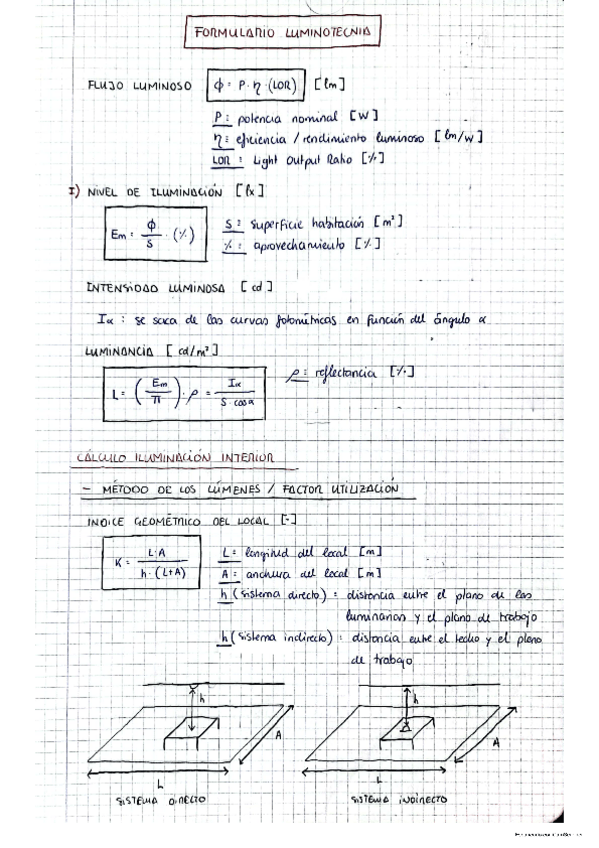 FORMULARIO LUMINOTECNIA
FLUJO LUMINOSO ϕ = P · η · (LOR) [lm]
P: potencia nominal [W]
η: eficiencia / rendimiento luminoso [lm/W]
LOR: Light Output Ratio [%]
I) NIVEL DE ILUMINACIÓN [lx]
Em = ϕ/S · (%)
S: Superficie habitación [m²]
%: aprovechamiento [%]
INTENSIDAD LUMINOSA [cd]
Iα : se saca de las curvas fotométricas en función del ángulo α
LUMINANCIA [cd/m²]
L = (Em/π) · ρ = Iα/(S · cosα)
ρ: reflectancia [%]
CÁLCULO ILUMINACIÓN INTERIOR
- MÉTODO DE LOS LÚMENES / FACTOR UTILIZACIÓN
INDICE GEOMÉTRICO DEL LOCAL [-]
K = L·A / h·(L+A)
L: longitud del local [m]
A: anchura del local [m]
h (sistema directo) : distancia entre el plano de las
luminarias y el plano de trabajo
h (sistema indirecto) : distancia entre el techo y el plano
de trabajo
h
A
L
SISTEMA DIRECTO
h
A
L
SISTEMA INDIRECTO